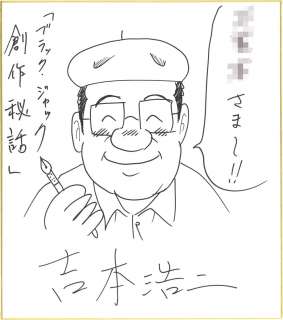 さま〜!!
「ブラック・ジャック
創作秘話」
吉本浩二